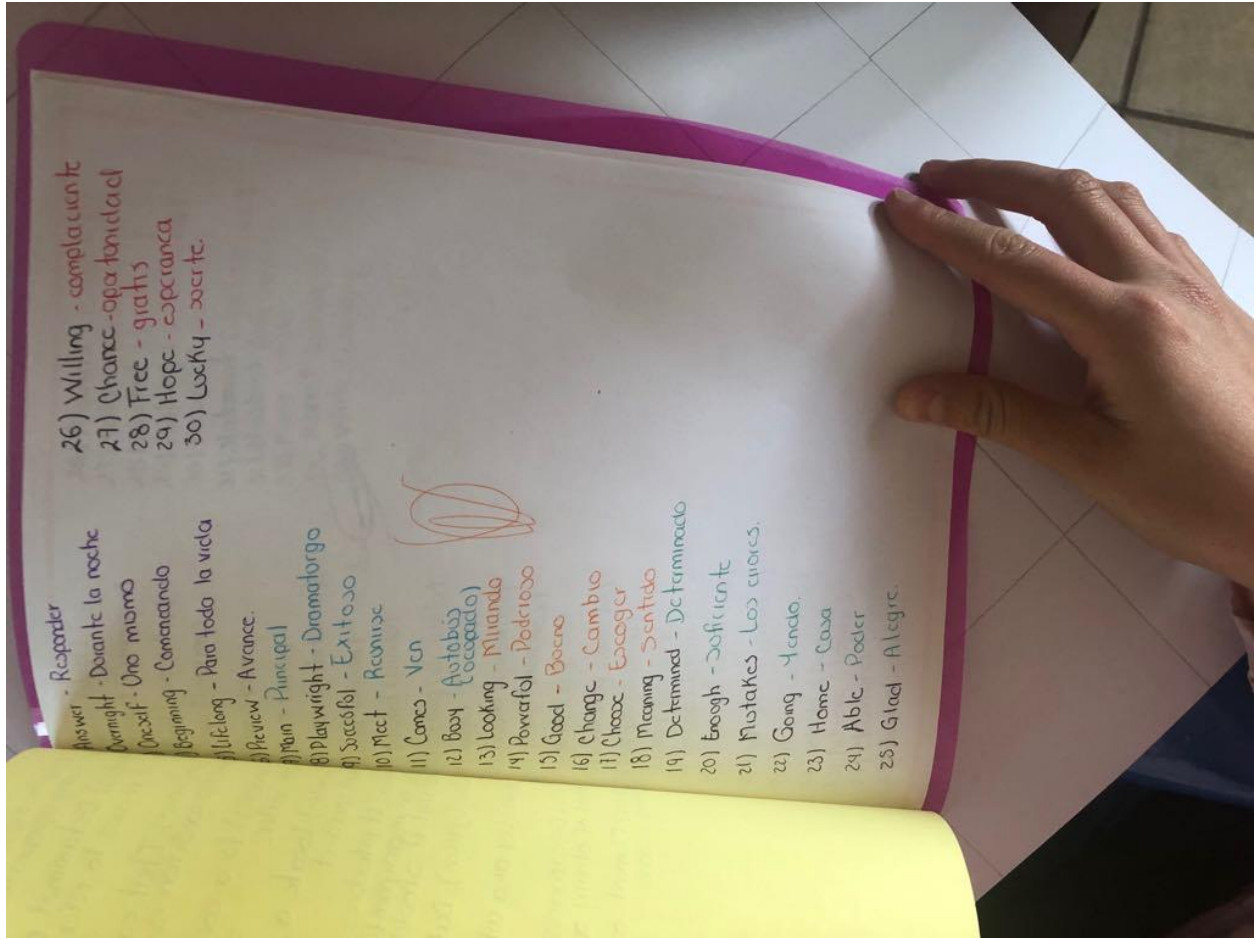 Answer - Responder
Overnight - Durante la noche
Oneself - Uno mismo
Beginning - Comenzando
5) Lifelong - Para toda la vida
6) Preview - Avance.
7) Main - Principal
8) Playwright - Dramaturgo
9) Succesful - Exitoso
10) Meet - Reunirse
11) Comes - Ven
12) Busy - Autobús
(ocupado)
13) Looking - Mirando
14) Powerful - Poderoso
15) Good - Bueno
16) Change - Cambio
17) Choose - Escoger
18) Meaning - Sentido
19) Determined - Determinado
20) Enough - Suficiente
21) Mistakes - Los errores.
22) Going - Yendo.
23) Home - Casa
24) Able - Poder
25) Glad - Alegre.
26) Willing - complaciente
27) Chance - oportunidad
28) Free - gratis
29) Hope - esperanca
30) Lucky - suerte.